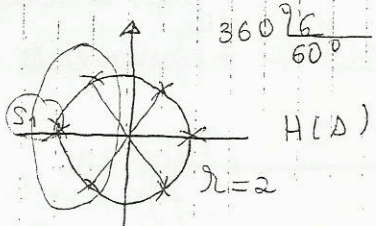 360° 6
60°
S1
H(s)
r=2